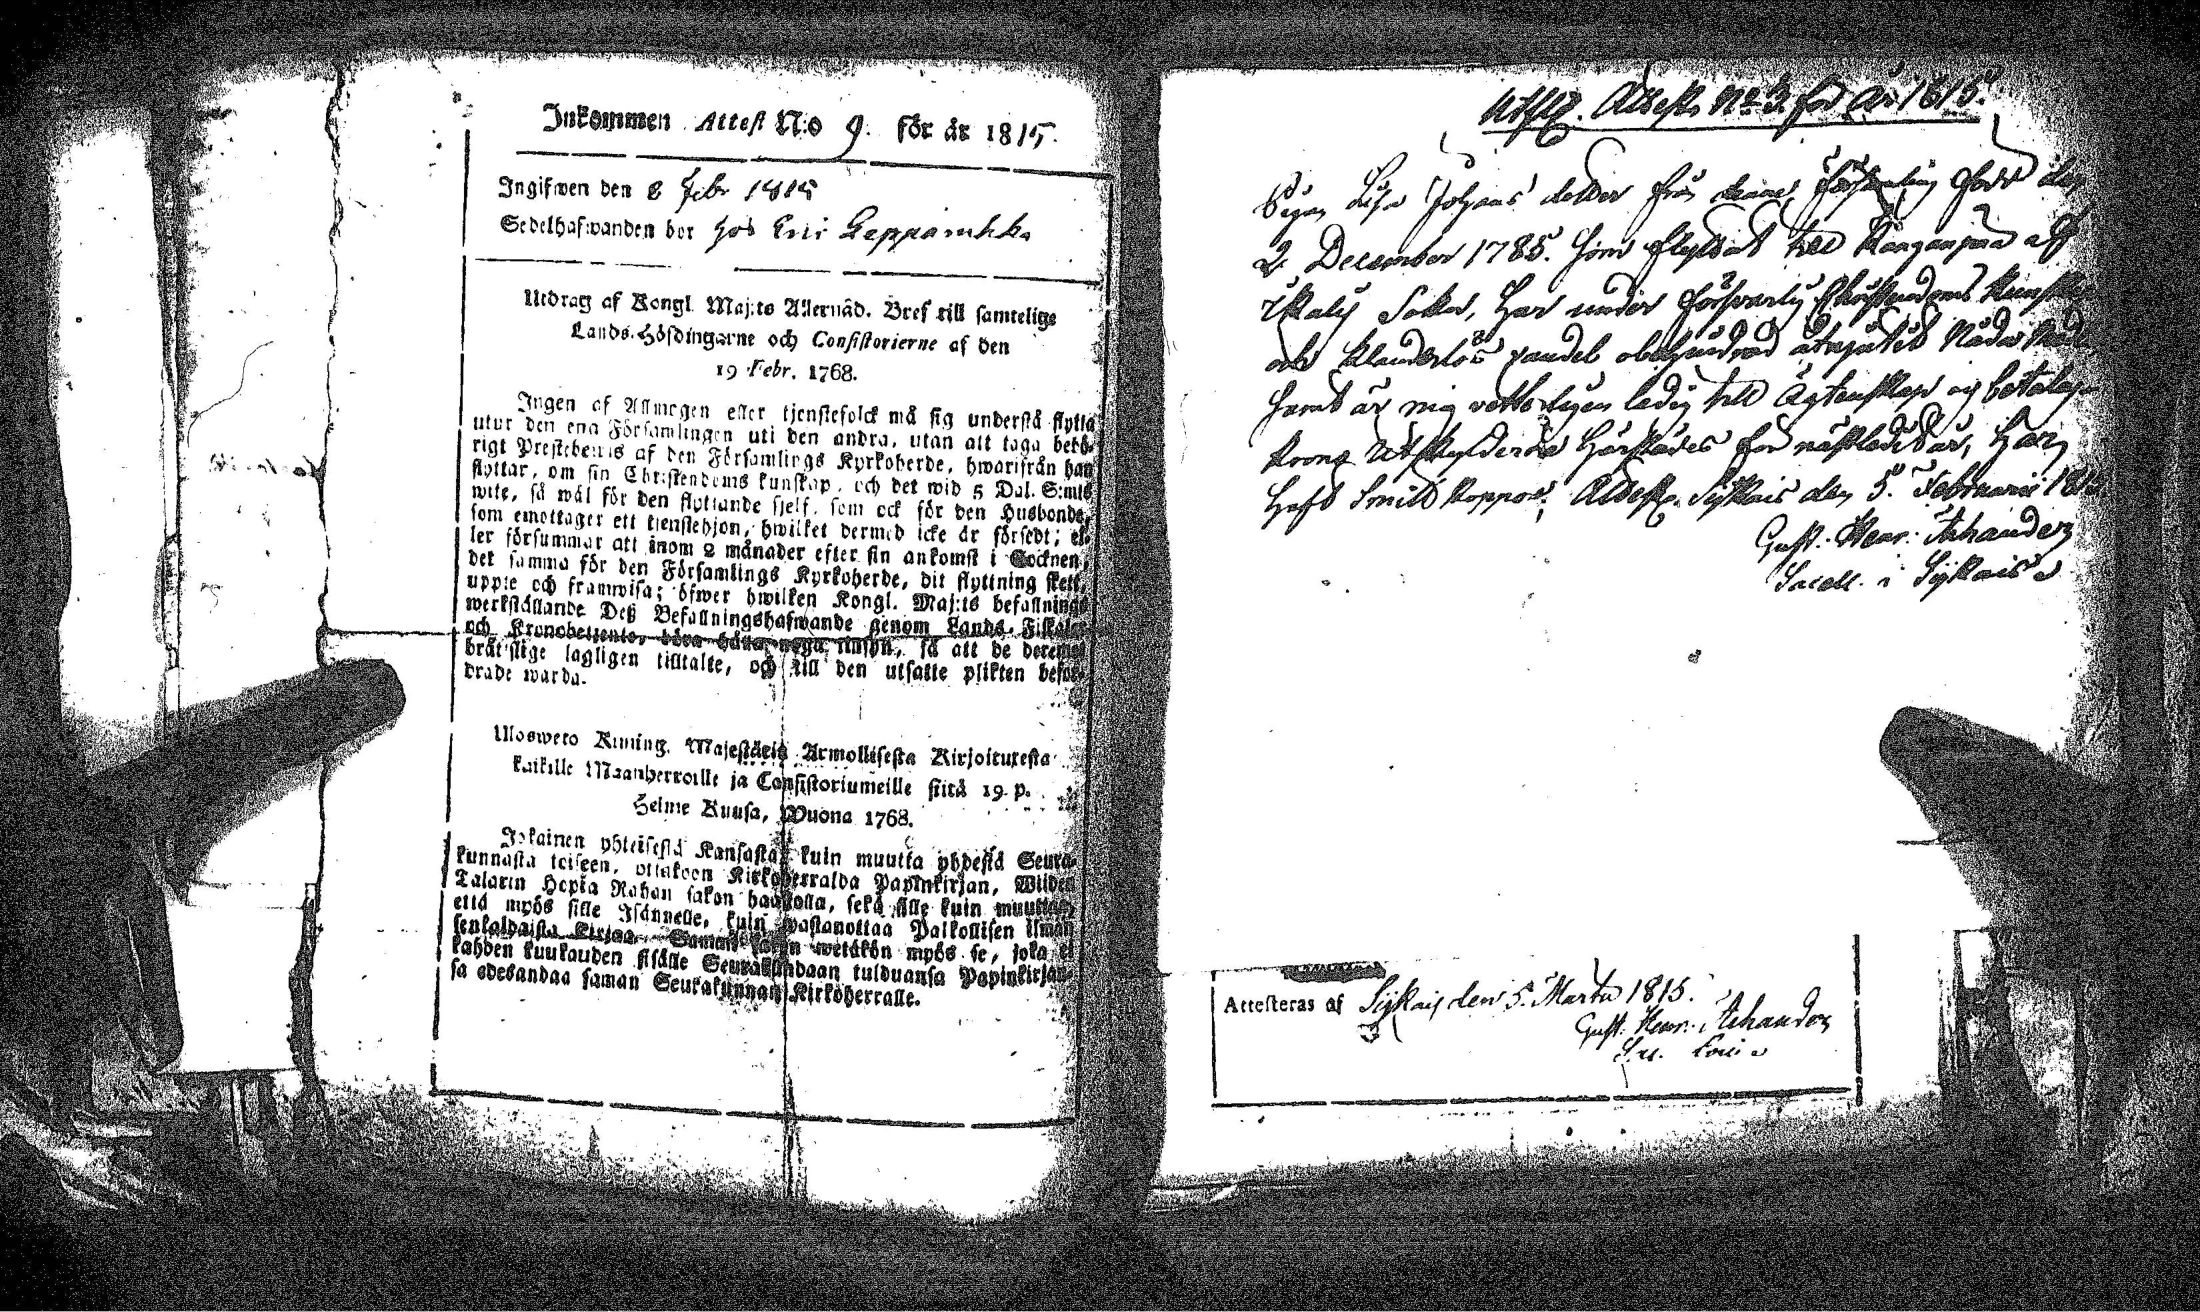 Inkommen Attest N:o 9. för år 1815.
Ingifwen den 8 Febr 1815
Sedelhafwanden bor hos Eric
Utdrag af Kongl. Maj:ts Allernåd. Bref till samtelige
Lands-Höfdingarne och Consistorierne af den
19 Febr. 1768.
Ingen af Allmogen eller tjenstefolck må sig understå flytta
utur den ena Församlingen uti den andra, utan att taga behö-
rigt Prestebewis af den Församlings Kyrkoherde, hwarifrån han
flyttar, om sin Christendoms kunskap, och det wid 5 Dal. S:mts
wite, så wäl för den flyttande sjelf, som ock för den Husbonde,
som emottager ett tjenstehjon, hwilket dermed icke är försedt; el-
ler försummar att inom 2 månader efter sin ankomst i Socknen,
det samma för den Församlings Kyrkoherde, dit flyttning skett,
uppte och framwisa; öfwer hwilken Kongl. Maj:ts befallnings
werkställande Deß Befallningshafwande genom Lands-Fiskaler
och Kronobetjente, böra hålla noga tillsyn, så att de deremot
brätslige lagligen tilltalte, och till den utsatte plikten befor-
drade warda.
Uloswето Kuning. Majestätin Armollisesta Kirjoituxesta
kaikille Maanherroille ja Consistoriumeille siitä 19 p.
Helme Kuusa, Wuona 1768.
Jokainen yhteisestä Kansasta, kuin muutta yhdestä Seura-
kunnasta toiseen, ottakoon Kirkoherralda Papinkirjan, Wiiden
Talarin Hopia Rahan sakon haastolla, sekä sille kuin muuttaa,
että myös sille Isännelle, kuin wastanottaa Palkollisen ilman
senkaldaista Kirjaa. Saman sakon wetäkön myös se, joka ei
kahden kuukauden sisälle Seurakundaan tulduansa Papinkirjan-
sa edesandaa saman Seurakunnan Kirkoherralle.
Attest N:o 3. för År 1815.
Pigan Lisa Johans dotter från denna Församling född den
2 December 1785. som flyttat till Kanganpää af
Socken, har under försvarlig Christendoms Kunskap
och Klanderlös vandel obehindrad åtnjutit Nådemedlen
samt är mig vetterligen ledig till Ägtenskap och betalt
Krono Utskylderna härstädes för nästledit år, Har
haft Smittkoppor; Attest. Sijkais den 5. Februarii 1815
Gust. Henr. Achander
Sacell. i Sijkais
Attesteras af Sijkais den 5. Martii 1815.
Gust. Henr. Achander